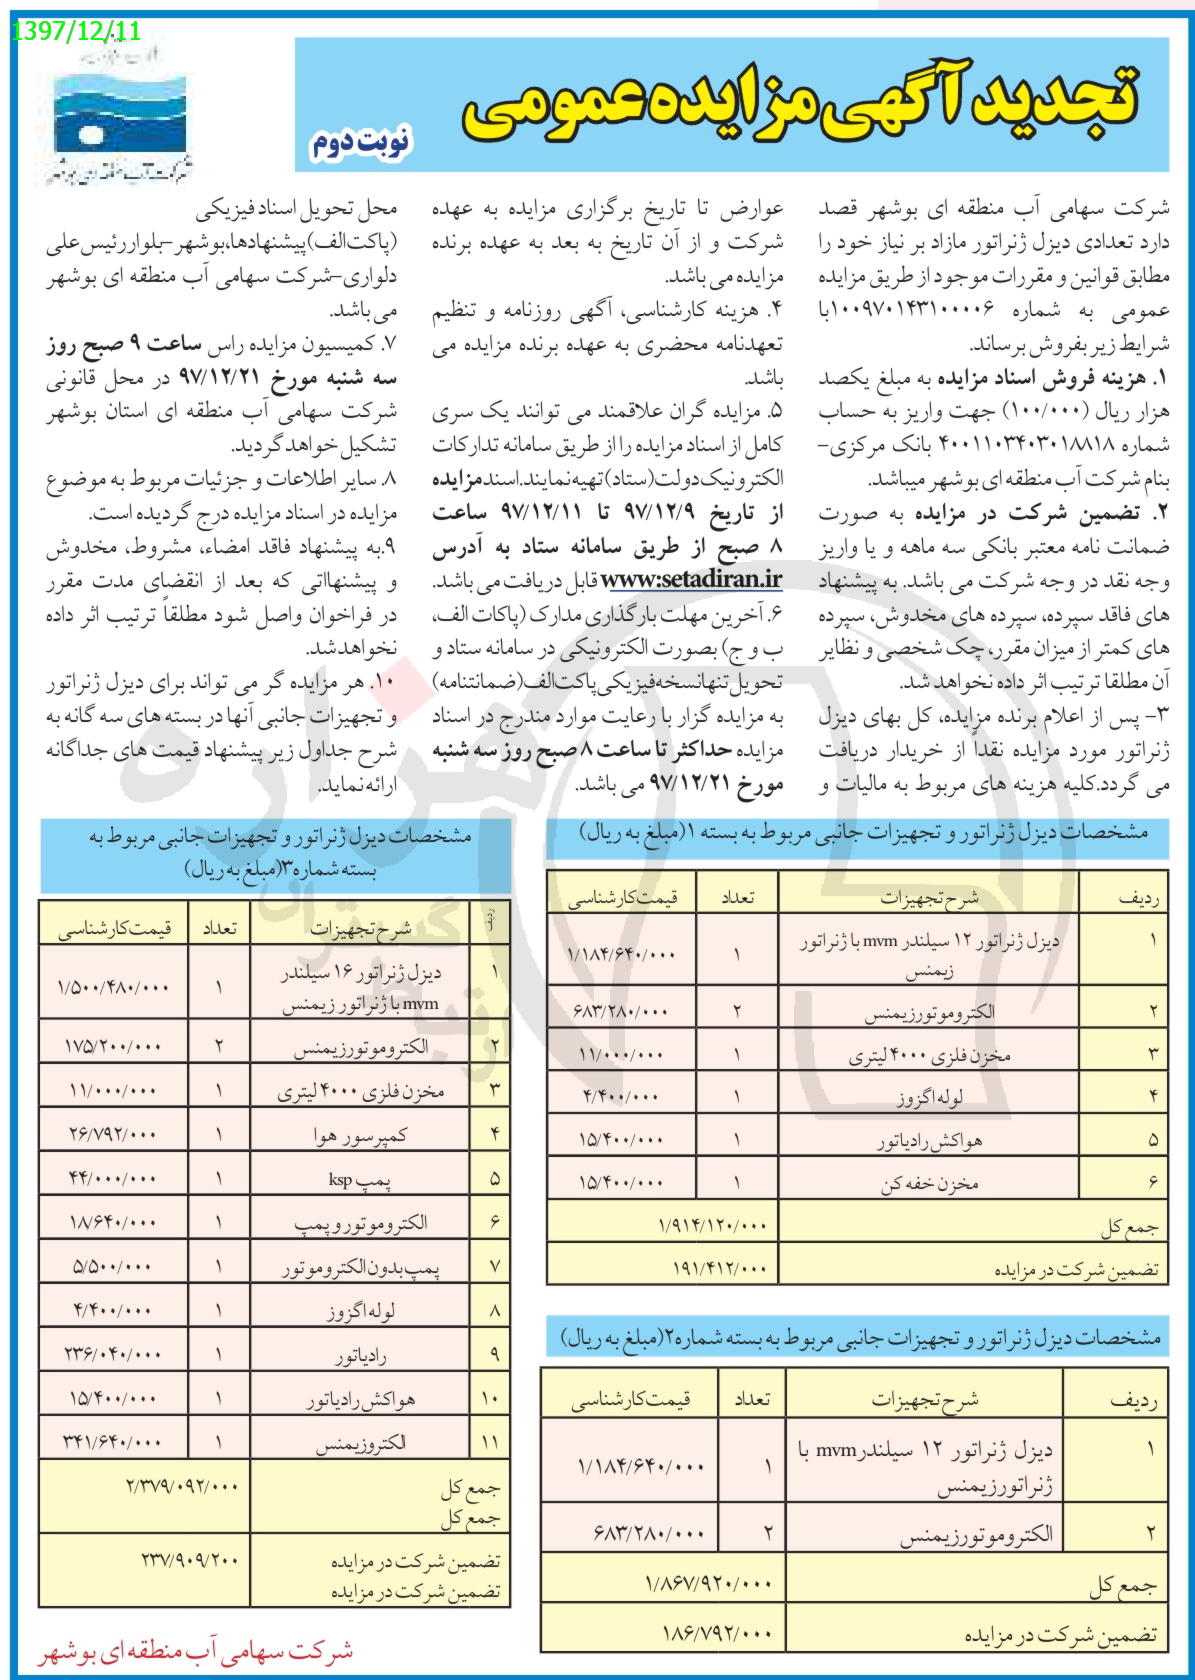 1397/12/11
تجدید آگهی مزایده عمومی
نوبت دوم
شرکت آب منطقه ای بوشهر
شرکت سهامی آب منطقه ای بوشهر قصد
دارد تعدادی دیزل ژنراتور مازاد بر نیاز خود را
مطابق قوانین و مقررات موجود از طریق مزایده
عمومی به شماره ۱۰۰۹۷۰۱۴۳۱۰۰۰۰۶ با
شرایط زیر بفروش برساند.
۱. هزینه فروش اسناد مزایده به مبلغ یکصد
هزار ریال (۱۰۰/۰۰۰) جهت واریز به حساب
شماره ۴۰۰۱۱۰۳۴۰۳۰۱۸۸۱۸ بانک مرکزی-
بنام شرکت آب منطقه ای بوشهر میباشد.
۲. تضمین شرکت در مزایده به صورت
ضمانت نامه معتبر بانکی سه ماهه و یا واریز
وجه نقد در وجه شرکت می باشد. به پیشنهاد
های فاقد سپرده، سپرده های مخدوش، سپرده
های کمتر از میزان مقرر، چک شخصی و نظایر
آن مطلقا ترتیب اثر داده نخواهد شد.
۳- پس از اعلام برنده مزایده، کل بهای دیزل
ژنراتور مورد مزایده نقداً از خریدار دریافت
می گردد.کلیه هزینه های مربوط به مالیات و
عوارض تا تاریخ برگزاری مزایده به عهده
شرکت و از آن تاریخ به بعد به عهده برنده
مزایده می باشد.
۴. هزینه کارشناسی، آگهی روزنامه و تنظیم
تعهدنامه محضری به عهده برنده مزایده می
باشد.
۵. مزایده گران علاقمند می توانند یک سری
کامل از اسناد مزایده را از طریق سامانه تدارکات
الکترونیک دولت (ستاد) تهیه نمایند.اسند مزایده
از تاریخ ۹۷/۱۲/۹ تا ۹۷/۱۲/۱۱ ساعت
۸ صبح از طریق سامانه ستاد به آدرس
www:setadiran.ir قابل دریافت می باشد.
۶. آخرین مهلت بارگذاری مدارک (پاکات الف،
ب و ج) بصورت الکترونیکی در سامانه ستاد و
تحویل تنها نسخه فیزیکی پاکت الف (ضمانتنامه)
به مزایده گزار با رعایت موارد مندرج در اسناد
مزایده حداکثر تا ساعت ۸ صبح روز سه شنبه
مورخ ۹۷/۱۲/۲۱ می باشد.
محل تحویل اسناد فیزیکی
(پاکت الف) پیشنهادها،بوشهر-بلوار رئیس علی
دلواری-شرکت سهامی آب منطقه ای بوشهر
می باشد.
۷. کمیسیون مزایده راس ساعت ۹ صبح روز
سه شنبه مورخ ۹۷/۱۲/۲۱ در محل قانونی
شرکت سهامی آب منطقه ای استان بوشهر
تشکیل خواهد گردید.
۸. سایر اطلاعات و جزئیات مربوط به موضوع
مزایده در اسناد مزایده درج گردیده است.
۹.به پیشنهاد فاقد امضاء، مشروط، مخدوش
و پیشنهااتی که بعد از انقضای مدت مقرر
در فراخوان واصل شود مطلقاً ترتیب اثر داده
نخواهد شد.
۱۰. هر مزایده گر می تواند برای دیزل ژنراتور
و تجهیزات جانبی آنها در بسته های سه گانه به
شرح جداول زیر پیشنهاد قیمت های جداگانه
ارائه نماید.
مشخصات دیزل ژنراتور و تجهیزات جانبی مربوط به بسته ۱(مبلغ به ریال)
ردیف شرح تجهیزات تعداد قیمت کارشناسی
۱ دیزل ژنراتور ۱۲ سیلندر mvm با ژنراتور ۱ ۱/۱۸۴/۶۴۰/۰۰۰
زیمنس
۲ الکتروموتور زیمنس ۲ ۶۸۳/۲۸۰/۰۰۰
۳ مخزن فلزی ۴۰۰۰ لیتری ۱ ۱۱/۰۰۰/۰۰۰
۴ لوله اگزوز ۱ ۴/۴۰۰/۰۰۰
۵ هواکش رادیاتور ۱ ۱۵/۴۰۰/۰۰۰
۶ مخزن خفه کن ۱ ۱۵/۴۰۰/۰۰۰
جمع کل ۱/۹۱۴/۱۲۰/۰۰۰
تضمین شرکت در مزایده ۱۹۱/۴۱۲/۰۰۰
مشخصات دیزل ژنراتور و تجهیزات جانبی مربوط به بسته شماره۲(مبلغ به ریال)
ردیف شرح تجهیزات تعداد قیمت کارشناسی
۱ دیزل ژنراتور ۱۲ سیلندر mvm با ۱ ۱/۱۸۴/۶۴۰/۰۰۰
ژنراتور زیمنس
۲ الکتروموتور زیمنس ۲ ۶۸۳/۲۸۰/۰۰۰
جمع کل ۱/۸۶۷/۹۲۰/۰۰۰
تضمین شرکت در مزایده ۱۸۶/۷۹۲/۰۰۰
مشخصات دیزل ژنراتور و تجهیزات جانبی مربوط به
بسته شماره۳(مبلغ به ریال)
ردیف شرح تجهیزات تعداد قیمت کارشناسی
۱ دیزل ژنراتور ۱۶ سیلندر ۱ ۱/۵۰۰/۴۸۰/۰۰۰
mvm با ژنراتور زیمنس
۲ الکتروموتور زیمنس ۲ ۱۷۵/۲۰۰/۰۰۰
۳ مخزن فلزی ۴۰۰۰ لیتری ۱ ۱۱/۰۰۰/۰۰۰
۴ کمپرسور هوا ۱ ۲۶/۷۹۲/۰۰۰
۵ پمپ ksp ۱ ۴۴/۰۰۰/۰۰۰
۶ الکتروموتور و پمپ ۱ ۱۸/۶۴۰/۰۰۰
۷ پمپ بدون الکتروموتور ۱ ۵/۵۰۰/۰۰۰
۸ لوله اگزوز ۱ ۴/۴۰۰/۰۰۰
۹ رادیاتور ۱ ۲۳۶/۰۴۰/۰۰۰
۱۰ هواکش رادیاتور ۱ ۱۵/۴۰۰/۰۰۰
۱۱ الکتروزیمنس ۱ ۳۴۱/۶۴۰/۰۰۰
جمع کل ۲/۳۷۹/۰۹۲/۰۰۰
جمع کل
تضمین شرکت در مزایده ۲۳۷/۹۰۹/۲۰۰
تضمین شرکت در مزایده
شرکت سهامی آب منطقه ای بوشهر
هزاره